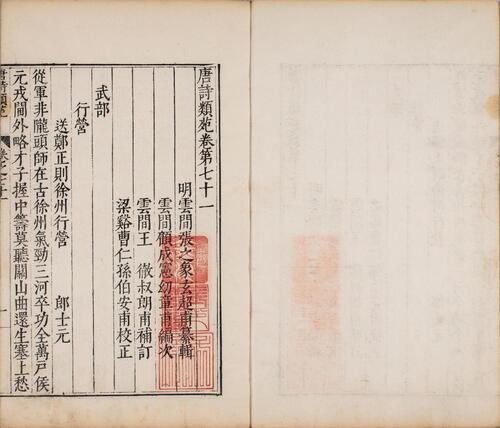 唐詩類苑卷第七十一
明雲間張之象玄超甫纂輯
雲間顧成憲幼章甫編次
雲間王 徹叔朗甫補訂
梁谿曹仁孫伯安甫校正
武部
行營
送鄭正則徐州行營 郎士元
從軍非隴頭師在古徐州氣勁三河卒功全萬戸侯
元戎閫外略才子握中籌莫聽關山曲還生塞上愁
唐詩類苑
卷之七十一
一